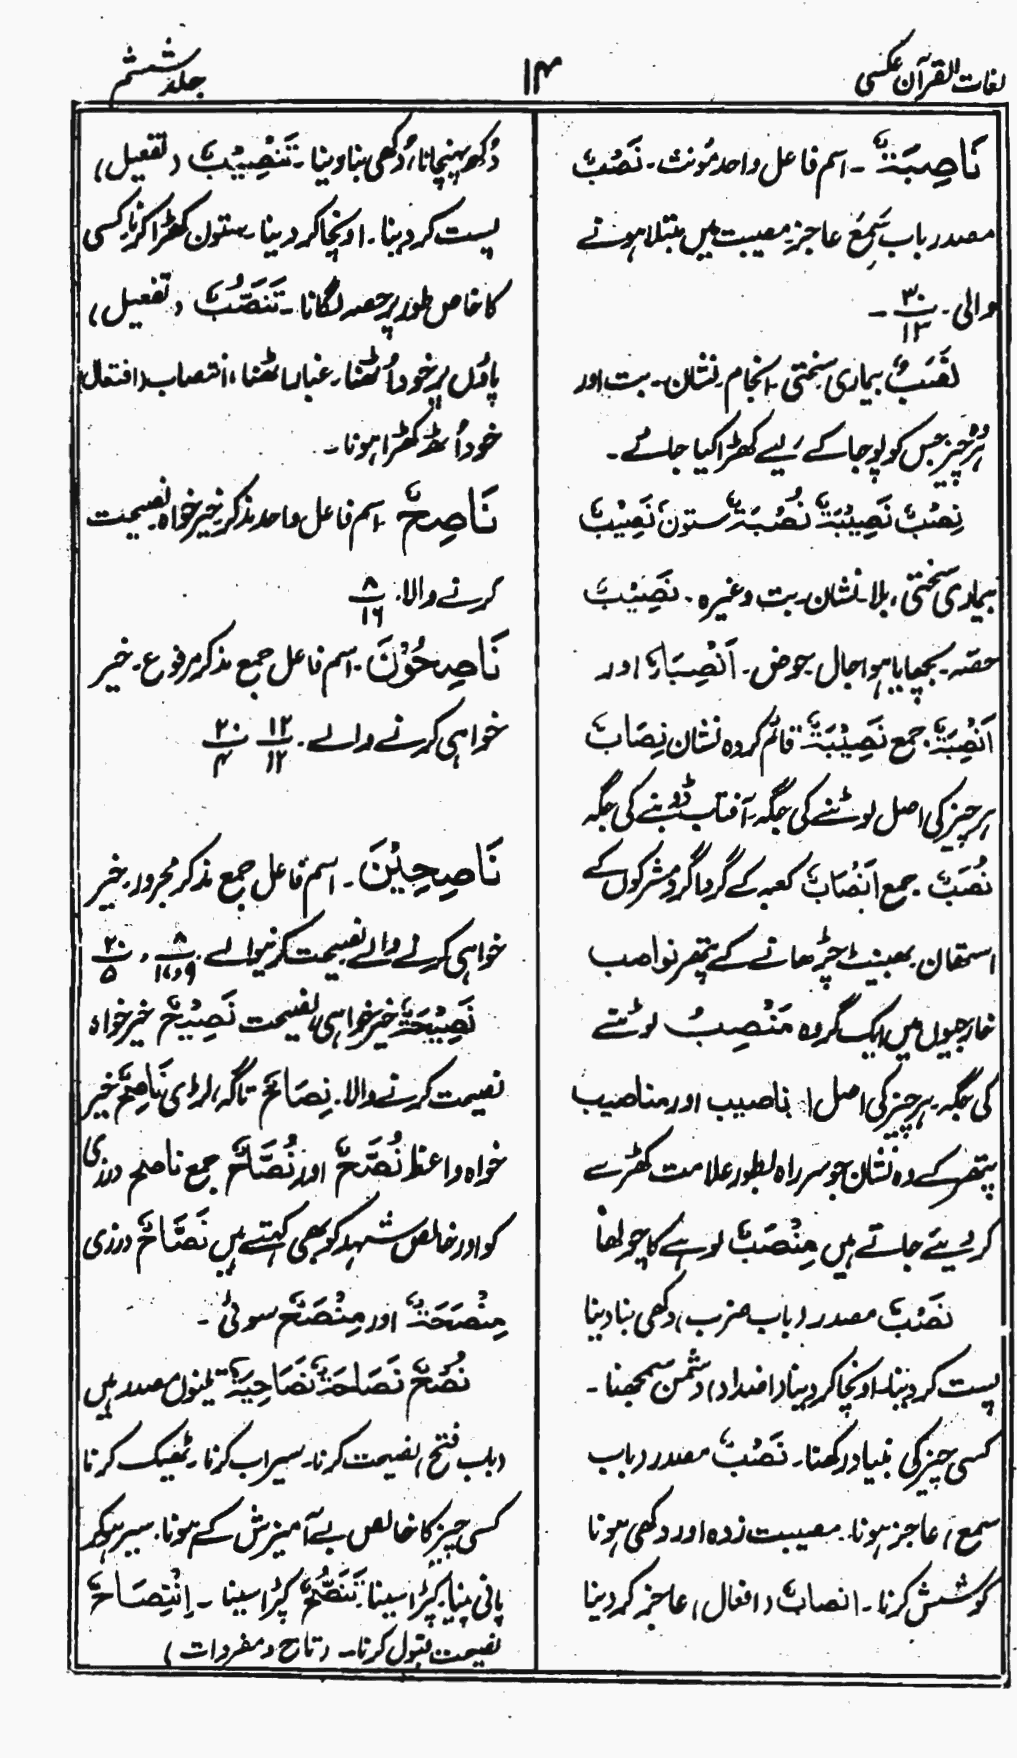 لغات القرآن عکسی
۱۴
جلد ششم
نَاصِبَۃٌ ۔ اسم فاعل واحد مؤنث۔ نَصْبٌ
مصدر باب سَمِعَ عاجز مصیبت میں مبتلا ہونے
والی۔ ۳۰/۱۳ ۔
نَصَبٌ بیماری سختی۔ انجام۔ نشان۔ بت اور
ہر چیز جس کو پوجا کے لیے کھڑا کیا جائے۔
نِصْبٌ نَصِیْبَۃٌ نُصْبَۃٌ ستون نَصِیْبٌ
بیماری سختی، بلا۔ نشان۔ بت وغیرہ۔ نَصِیْبٌ
حصہ۔ بچھایا ہوا جال۔ حوض۔ اَنْصِبَاءُ اور
اَنْصِبَۃٌ۔ جمع نَصِیْبَۃٌ قائم کردہ نشان نِصَابٌ
ہر چیز کی اصل لوٹنے کی جگہ۔ آفتاب ڈوبنے کی جگہ
نُصُبٌ۔ جمع اَنْصَابٌ کعبہ کے گرداگرد مشرکوں کے
استھان۔ بھینٹ چڑھانے کے پتھر نواصب
خارجیوں میں ایک گروہ مَنْصِبٌ لوٹنے
کی جگہ۔ ہر چیز کی اصل۔ ناصیب اور مناصیب
پتھر کے وہ نشان جو سر راہ بطور علامت کھڑے
کر دیئے جاتے ہیں مِنْصَبٌ لوہے کا چولھا
نَصْبٌ مصدر (باب ضرب) دکھی بنا دینا
پست کر دینا۔ اونچا کر دینا (اضداد) دشمن سمجھنا۔
کسی چیز کی بنیاد رکھنا۔ نَصَبٌ مصدر (باب
سمع) عاجز ہونا۔ مصیبت زدہ اور دکھی ہونا
کوشش کرنا۔ انصابٌ (افعال) عاجز کر دینا
دُکھ پہنچانا، دُکھی بنا دینا۔ تَنْصِیْبٌ (تفعیل)
پست کر دینا۔ اونچا کر دینا۔ ستون کھڑا کرنا۔ کسی
کا خاص طور پر حصہ لگانا۔ تَنَصُّبٌ (تفعیل)
پاؤں پر خود اُٹھنا۔ غبار اٹھنا، انتصاب (افتعال)
خود اُٹھ کھڑا ہونا۔
نَاصِحٌ اسم فاعل واحد مذکر خیر خواہ۔ نصیحت
کرنے والا۔ ۸/۱۶
نَاصِحُوْنَ۔ اسم فاعل جمع مذکر مرفوع۔ خیر
خواہی کرنے والے۔ ۱۲/۱۲ ۲۰/۴
نَاصِحِیْنَ۔ اسم فاعل جمع مذکر مجرور۔ خیر
خواہی کرنے والے نصیحت کرنیوالے۔ ۸/۹،۱۶ ، ۲۰/۵
نَصِیْحَۃٌ خیر خواہی، نصیحت نَصِیْحٌ خیر خواہ
نصیحت کرنے والا۔ نِصَاحٌ تاگہ، لڑی نَاصِحٌ خیر
خواہ واعظ نُصَّحٌ اور نُصَّاحٌ جمع ناصح درزی
کو اور خالص شہد کو بھی کہتے ہیں نَصَّاحٌ درزی
مِنْصَحَۃٌ اور مِنْصَحٌ سوئی۔
نُصْحٌ نَصَاحَۃٌ نَصَاحِیَۃٌ تینوں مصدر ہیں
(باب فتح) نصیحت کرنا۔ سیراب کرنا۔ ٹھیک کرنا
کسی چیز کا خالص بے آمیزش کے ہونا۔ سیر ہو کر
پانی پینا۔ کپڑا سینا۔ تَنَصُّحٌ کپڑا سینا۔ اِنْتِصَاحٌ
نصیحت قبول کرنا۔ (تاج و مفردات)